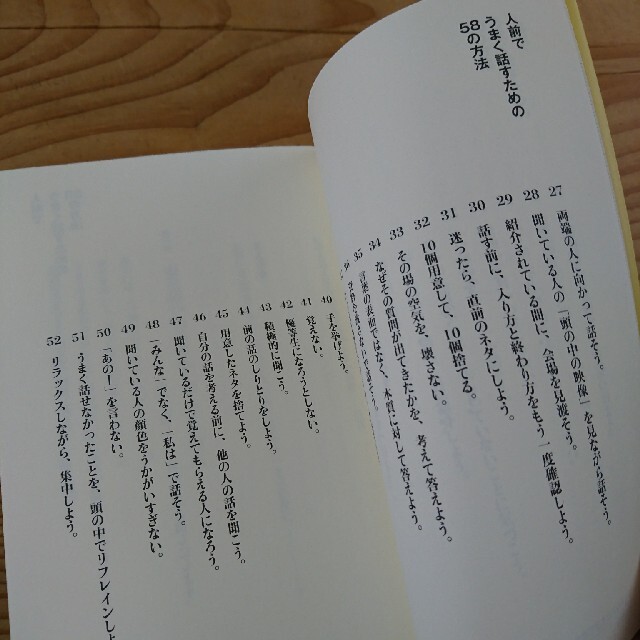 人前で
うまく話すための
58の方法
27 両端の人に向かって話そう。
28 聞いている人の「頭の中の映像」を見ながら話そう。
29 紹介されている間に、会場を見渡そう。
30 話す前に、入り方と終わり方をもう一度確認しよう。
31 迷ったら、直前のネタにしよう。
32 10個用意して、10個捨てる。
33 その場の空気を、壊さない。
34 なぜその質問が出てきたかを、考えて答えよう。
35 言葉の表面ではなく、本質に対して答えよう。
40 手を挙げよう。
41 覚えない。
42 優等生になろうとしない。
43 積極的に聞こう。
44 前の話のしりとりをしよう。
45 用意したネタを捨てよう。
46 自分の話を考える前に、他の人の話を聞こう。
47 聞いているだけで覚えてもらえる人になろう。
48 「みんな」でなく、「私は」で話そう。
49 聞いている人の顔色をうかがいすぎない。
50 「あのー」を言わない。
51 うまく話せなかったことを、頭の中でリフレインしよ
52 リラックスしながら、集中しよう。